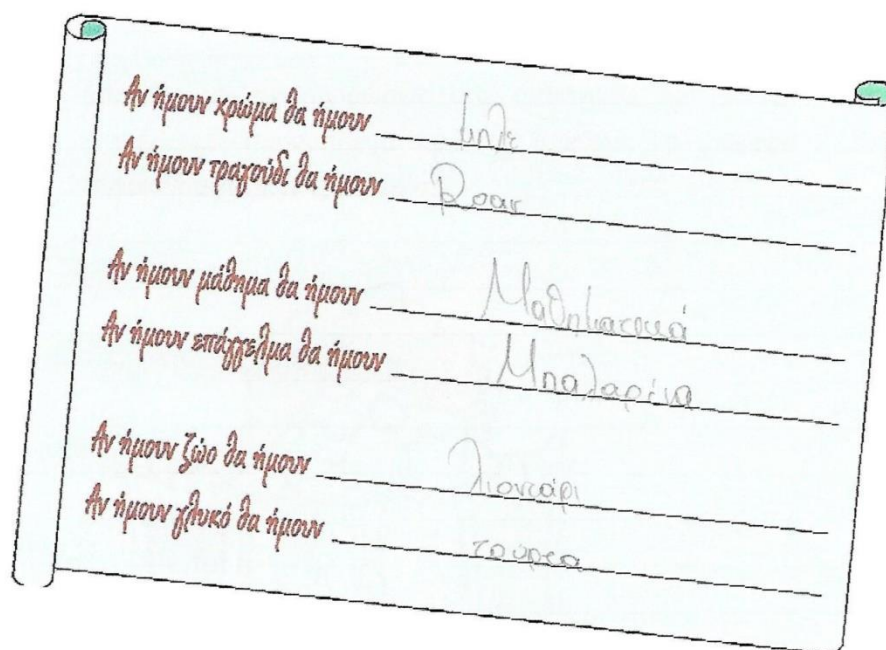 Αν ήμουν χρώμα θα ήμουν μπλε
Αν ήμουν τραγούδι θα ήμουν Roar
Αν ήμουν μάθημα θα ήμουν Μαθηματικά
Αν ήμουν επάγγελμα θα ήμουν Μπαλαρίνα
Αν ήμουν ζώο θα ήμουν λιοντάρι
Αν ήμουν γλυκό θα ήμουν τούρτα